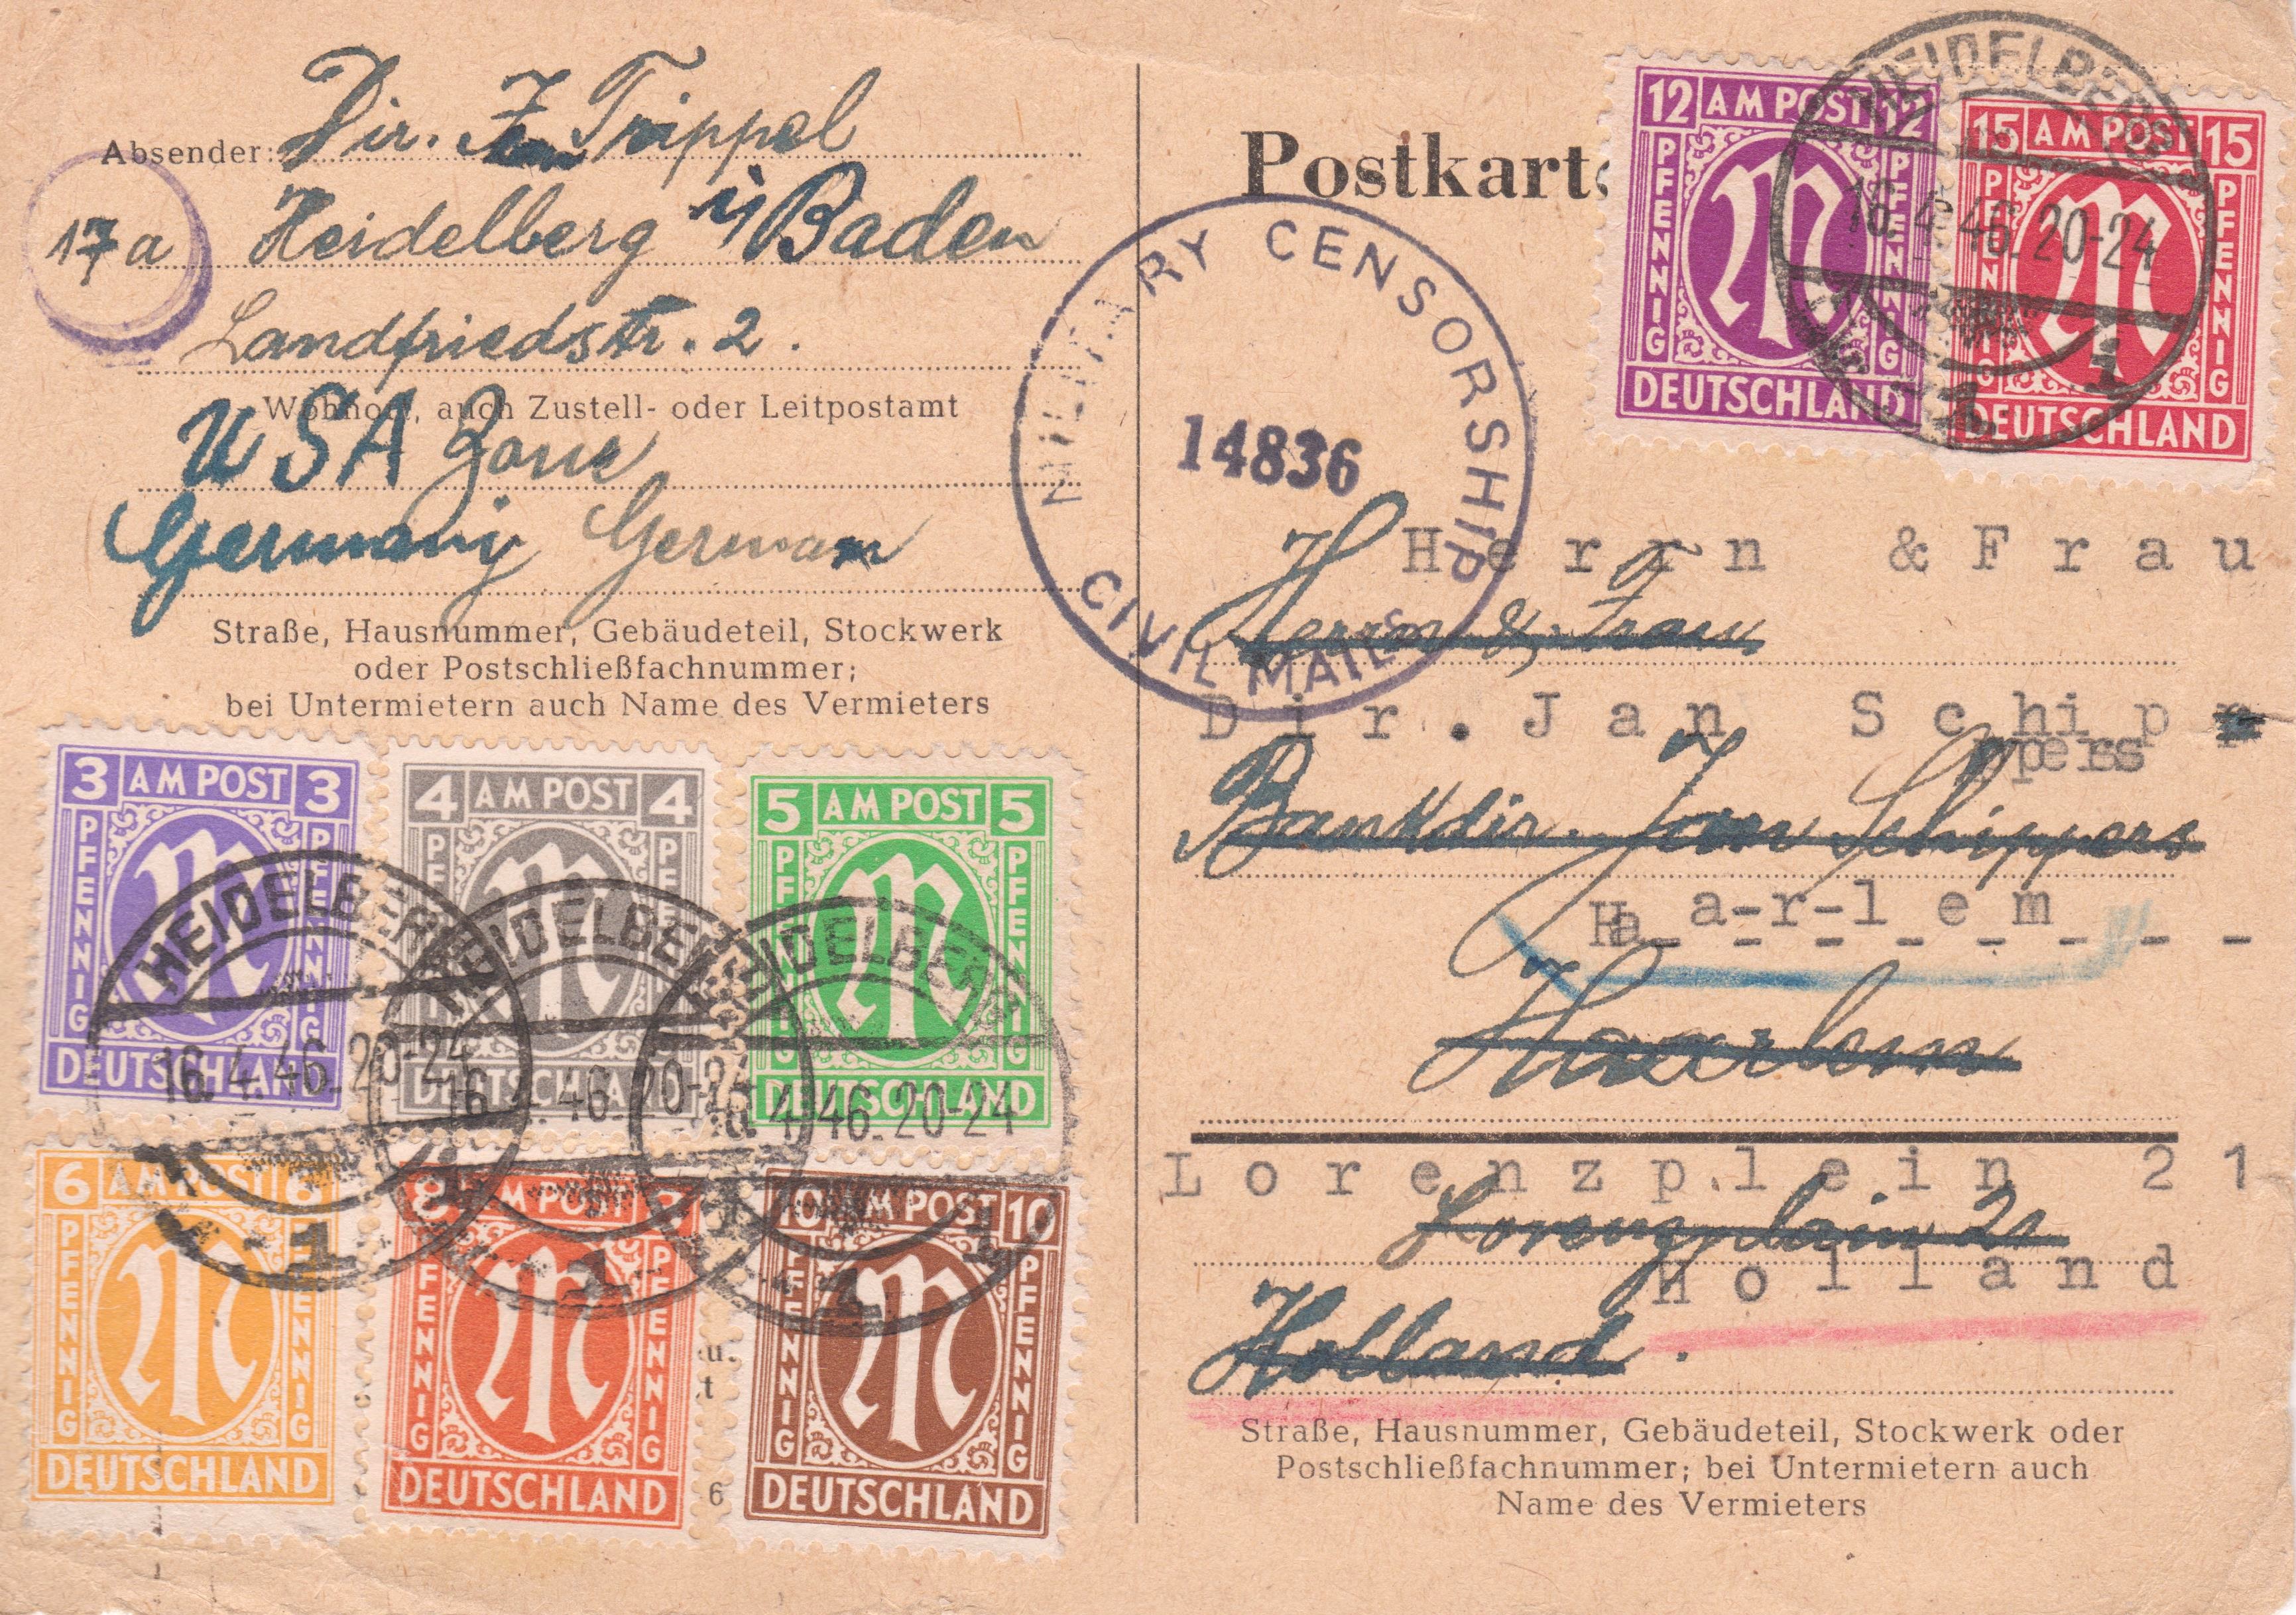 Absender: Dir. Trippel
17a Heidelberg i/ Baden
Landfriedstr. 2.
Wohnort, auch Zustell- oder Leitpostamt
USA Zone
Germany German
Straße, Hausnummer, Gebäudeteil, Stockwerk
oder Postschließfachnummer;
bei Untermietern auch Name des Vermieters
3 AM POST 3
PFENNIG PFENNIG
DEUTSCHLAND
4 AM POST 4
PFENNIG PFENNIG
DEUTSCHLAND
5 AM POST 5
PFENNIG PFENNIG
DEUTSCHLAND
HEIDELBERG
16.4.46.20-24
1
HEIDELBERG
16. 46.20-24
1
HEIDELBERG
16.4.46.20-24
1
6 AM POST 6
PFENNIG PFENNIG
DEUTSCHLAND
8 AM POST 8
PFENNIG PFENNIG
DEUTSCHLAND
10 AM POST 10
PFENNIG PFENNIG
DEUTSCHLAND
u.
t
6
Postkarte
12 AM POST 12
PFENNIG PFENNIG
DEUTSCHLAND
15 AM POST 15
PFENNIG PFENNIG
DEUTSCHLAND
HEIDELBERG
16.4.46.20-24
1
MILITARY CENSORSHIP
14836
CIVIL MAILS
Herrn & Frau
Herrn & Frau
Dir. Jan Schipp
ppers
Bankdir. Jan Schippers
Haarlem
Haarlem
Lorenzplein 21
Lorenzplein 21
Holland
Holland.
Straße, Hausnummer, Gebäudeteil, Stockwerk oder
Postschließfachnummer; bei Untermietern auch
Name des Vermieters